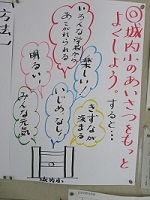 ◎城内小のあいさつをもっと
よくしよう。すると…
いろんな学校からの
あこがれられる
楽しい！
きずなが
深まる
いじめなし！
明るい！
みんな元気
城内小
【方法】